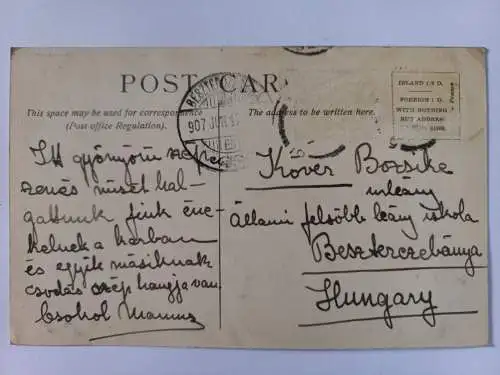 POST CARD
This space may be used for correspondence
(Post office Regulation).
The address to be written here.
INLAND 1/2 D.
FOREIGN 1 D.
WITH NOTHING
BUT ADDRESS
907 JUN
Itt gyönyörű szép
zenés misét hal-
gattunk fiuk éne-
kelnek a karban
és egyik másiknak
csodás szép hangja van.
Csokol Mamuz
Kövér Bozsike
urleány
állami felsőbb leány iskola
Beszterczebánya
Hungary